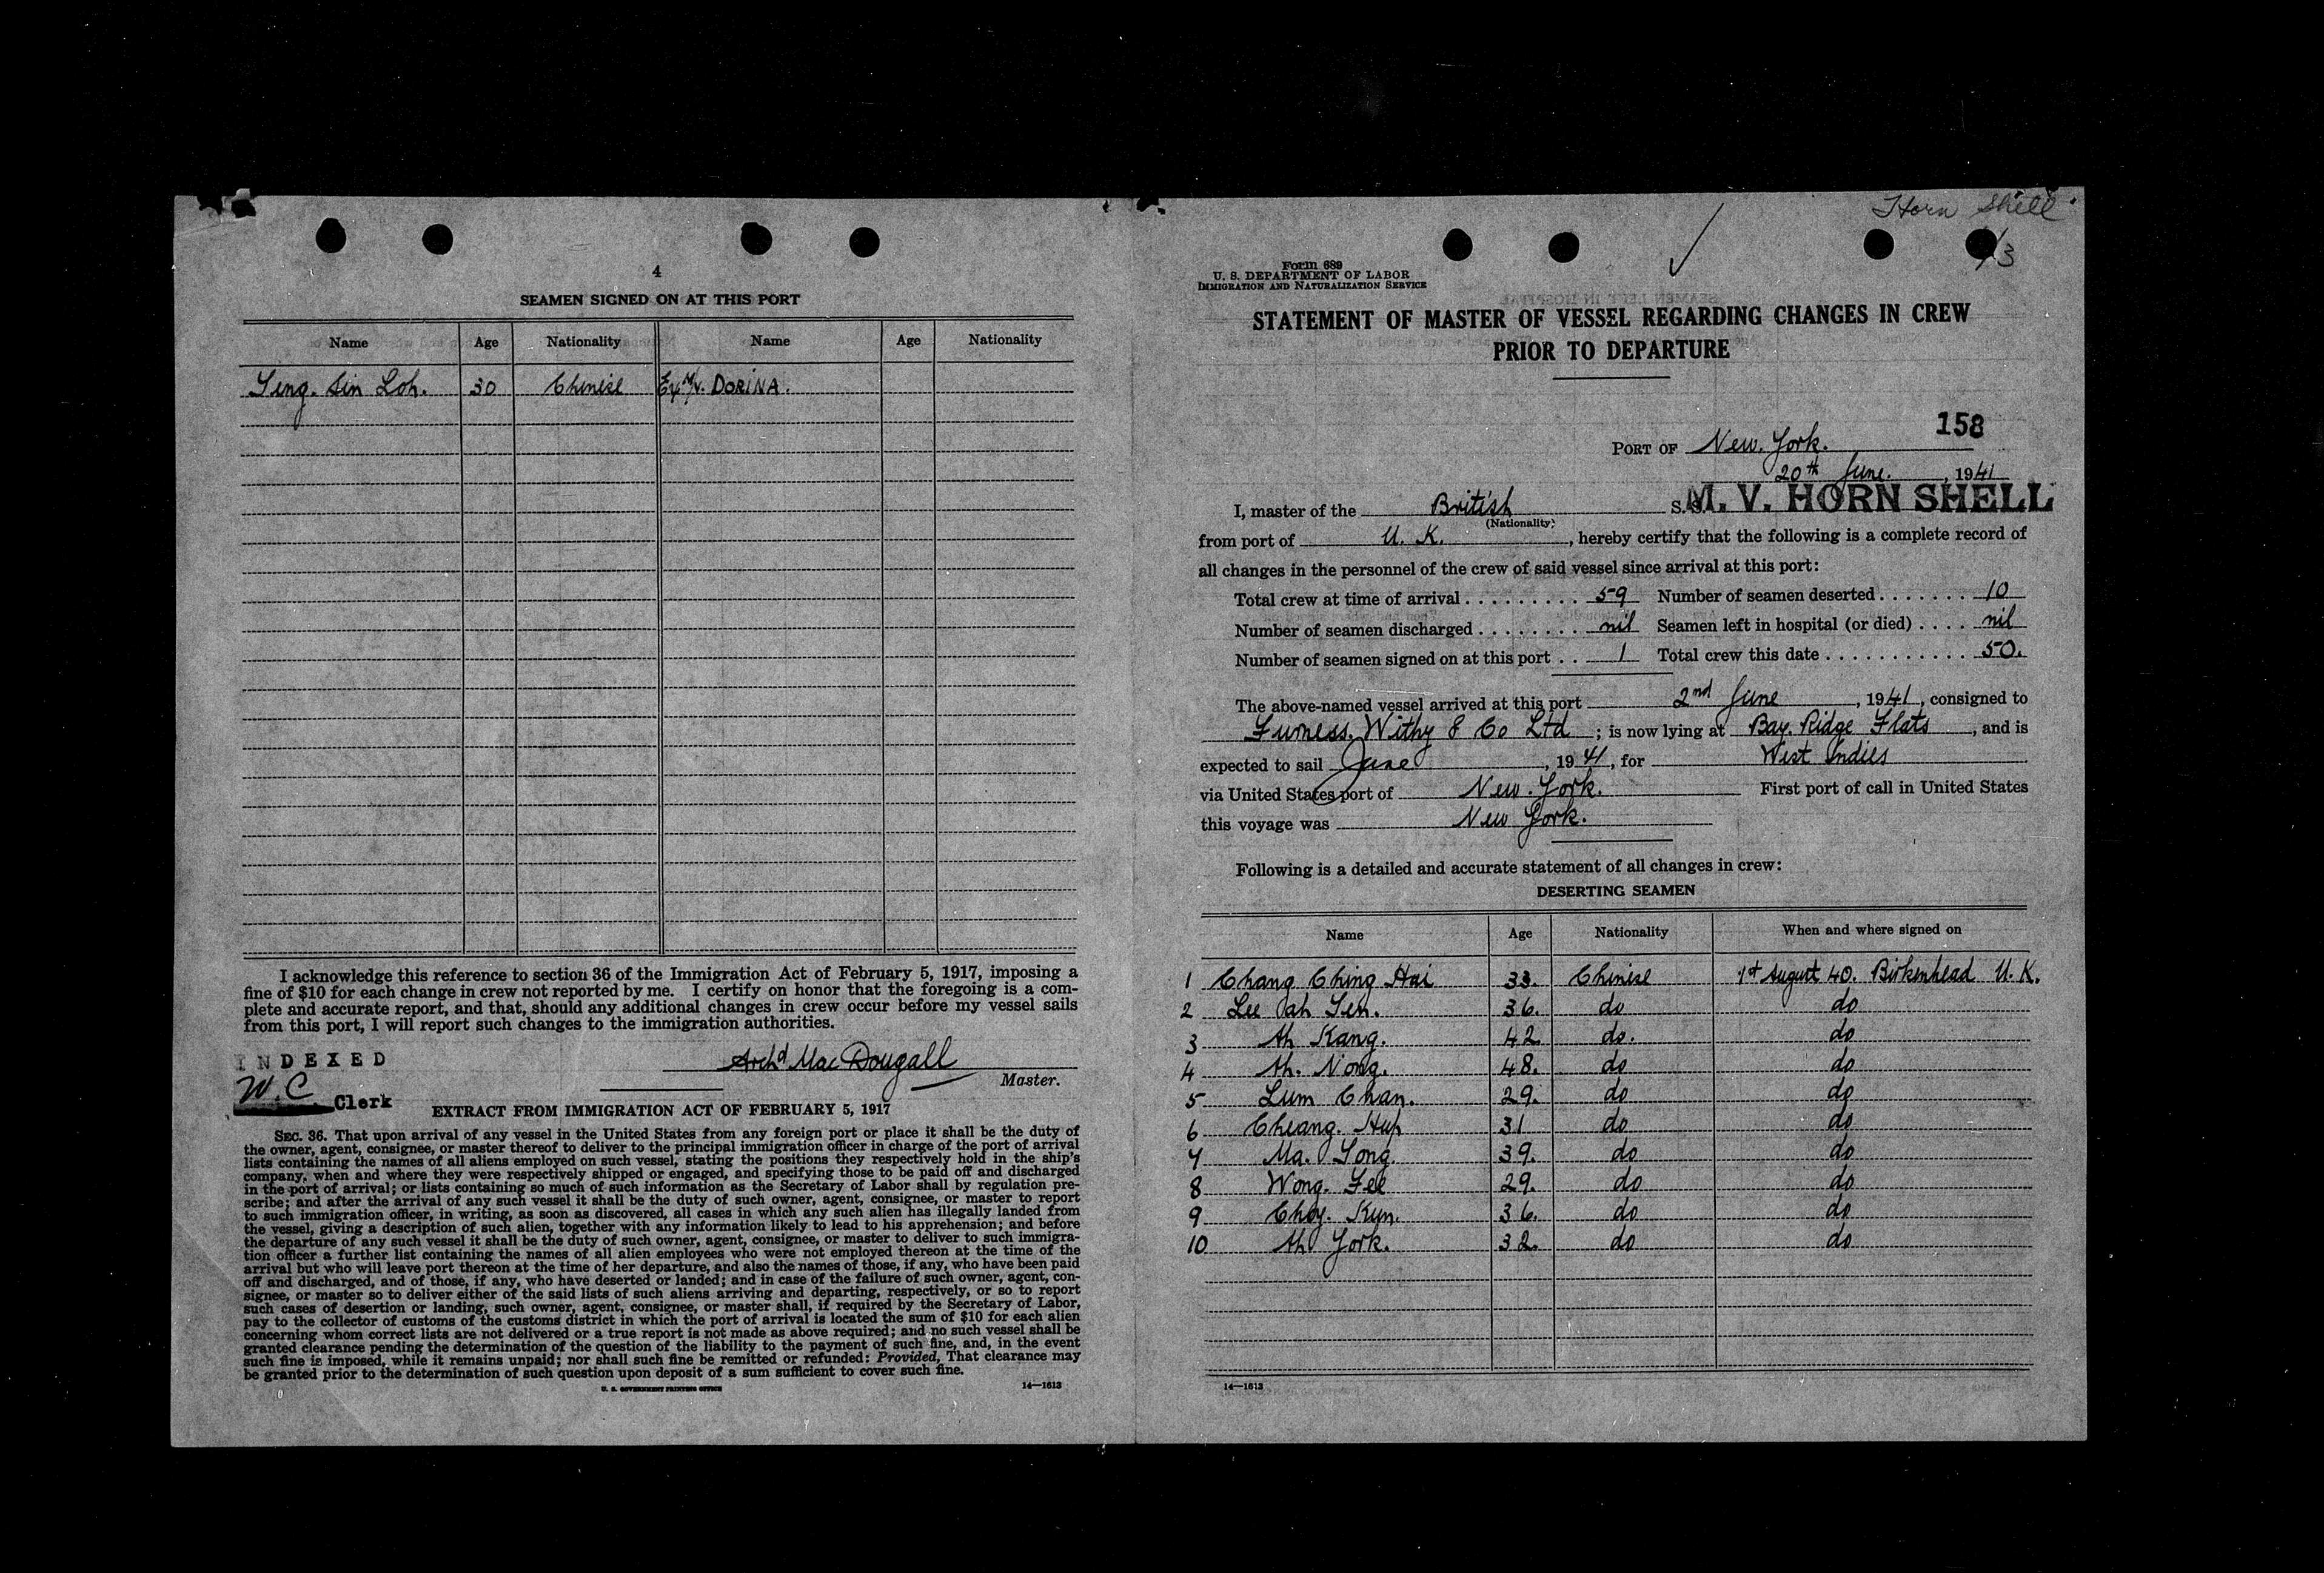 4
SEAMEN SIGNED ON AT THIS PORT
Name Age Nationality Name Age Nationality
Seng. Sin Loh. 30 Chinese Ex M/V. DORINA.
I acknowledge this reference to section 36 of the Immigration Act of February 5, 1917, imposing a
fine of $10 for each change in crew not reported by me. I certify on honor that the foregoing is a com-
plete and accurate report, and that, should any additional changes in crew occur before my vessel sails
from this port, I will report such changes to the immigration authorities.
INDEXED
Archd MacDougall
Master.
W.C
Clerk
EXTRACT FROM IMMIGRATION ACT OF FEBRUARY 5, 1917
SEC. 36. That upon arrival of any vessel in the United States from any foreign port or place it shall be the duty of
the owner, agent, consignee, or master thereof to deliver to the principal immigration officer in charge of the port of arrival
lists containing the names of all aliens employed on such vessel, stating the positions they respectively hold in the ship's
company, when and where they were respectively shipped or engaged, and specifying those to be paid off and discharged
in the port of arrival; or lists containing so much of such information as the Secretary of Labor shall by regulation pre-
scribe; and after the arrival of any such vessel it shall be the duty of such owner, agent, consignee, or master to report
to such immigration officer, in writing, as soon as discovered, all cases in which any such alien has illegally landed from
the vessel, giving a description of such alien, together with any information likely to lead to his apprehension; and before
the departure of any such vessel it shall be the duty of such owner, agent, consignee, or master to deliver to such immigra-
tion officer a further list containing the names of all alien employees who were not employed thereon at the time of the
arrival but who will leave port thereon at the time of her departure, and also the names of those, if any, who have been paid
off and discharged, and of those, if any, who have deserted or landed; and in case of the failure of such owner, agent, con-
signee, or master so to deliver either of the said lists of such aliens arriving and departing, respectively, or so to report
such cases of desertion or landing, such owner, agent, consignee, or master shall, if required by the Secretary of Labor,
pay to the collector of customs of the customs district in which the port of arrival is located the sum of $10 for each alien
concerning whom correct lists are not delivered or a true report is not made as above required; and no such vessel shall be
granted clearance pending the determination of the question of the liability to the payment of such fine, and, in the event
such fine is imposed, while it remains unpaid; nor shall such fine be remitted or refunded: Provided, That clearance may
be granted prior to the determination of such question upon deposit of a sum sufficient to cover such fine.
U. S. GOVERNMENT PRINTING OFFICE 14—1613
Horn Shell
Form 689
U. S. DEPARTMENT OF LABOR
IMMIGRATION AND NATURALIZATION SERVICE
STATEMENT OF MASTER OF VESSEL REGARDING CHANGES IN CREW
PRIOR TO DEPARTURE
158
PORT OF New York.
20th June, 1941
I, master of the British S. S. M. V. HORN SHELL
(Nationality)
from port of U. K., hereby certify that the following is a complete record of
all changes in the personnel of the crew of said vessel since arrival at this port:
Total crew at time of arrival . . . . . . . . . 59 Number of seamen deserted . . . . . . . 10
Number of seamen discharged . . . . . . . . nil Seamen left in hospital (or died) . . . . nil
Number of seamen signed on at this port . . 1 Total crew this date . . . . . . . . . . . 50.
The above-named vessel arrived at this port 2nd June, 1941, consigned to
Furness. Withy & Co Ltd; is now lying at Bay. Ridge Flats, and is
expected to sail June, 1941, for West Indies
via United States port of New. York. First port of call in United States
this voyage was New York.
Following is a detailed and accurate statement of all changes in crew:
DESERTING SEAMEN
Name Age Nationality When and where signed on
1 Chang Ching Hai 33. Chinese 1st August 40. Birkenhead U. K.
2 Lee Ah Sen. 36. do do
3 Ah Kang. 42 do. do
4 Ah. Nong. 48. do do
5 Lum Chan. 29. do do
6 Cheang. Hup 31 do do
7 Ma. Song. 39. do do
8 Wong. Fee 29. do do
9 Choy. Kun. 36. do do
10 Ah York. 32. do do
14—1613